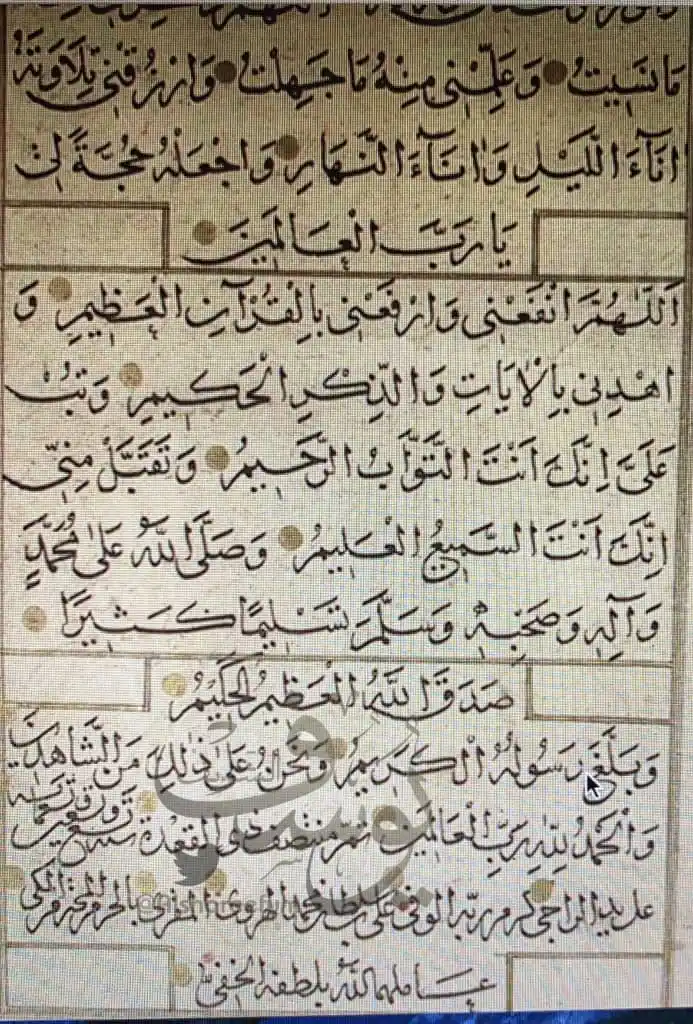 مَا نَسِيتُ وَعَلِّمْنِي مِنْهُ مَا جَهِلْتُ وَارْزُقْنِي تِلَاوَتَهُ
اٰنَآءَ اللَّيْلِ وَاٰنَآءَ النَّهَارِ وَاجْعَلْهُ حُجَّةً لِي
يَا رَبَّ الْعَالَمِينَ
اَللّٰهُمَّ انْفَعْنِي وَارْفَعْنِي بِالْقُرْآنِ الْعَظِيمِ وَ
اهْدِنِي بِالْاٰيَاتِ وَالذِّكْرِ الْحَكِيمِ وَتُبْ
عَلَيَّ اِنَّكَ اَنْتَ التَّوَّابُ الرَّحِيمُ وَتَقَبَّلْ مِنِّي
اِنَّكَ اَنْتَ السَّمِيعُ الْعَلِيمُ وَصَلَّى اللّٰهُ عَلٰى مُحَمَّدٍ
وَآلِهِ وَصَحْبِهِ وَسَلَّمَ تَسْلِيمًا كَثِيرًا
صَدَقَ اللّٰهُ الْعَظِيمُ الْحَكِيمُ
وَبَلَّغَ رَسُولُهُ الْكَرِيمُ وَنَحْنُ عَلٰى ذٰلِكَ مِنَ الشَّاهِدِينَ
وَالْحَمْدُ لِلّٰهِ رَبِّ الْعَالَمِينَ تم منتصف ذي القعدة
على يد الراجي كرم ربه الوفي علي بن سلطان محمد الهروي المقري بالحرم المحترم المكي
عاملهما الله بلطفه الخفي